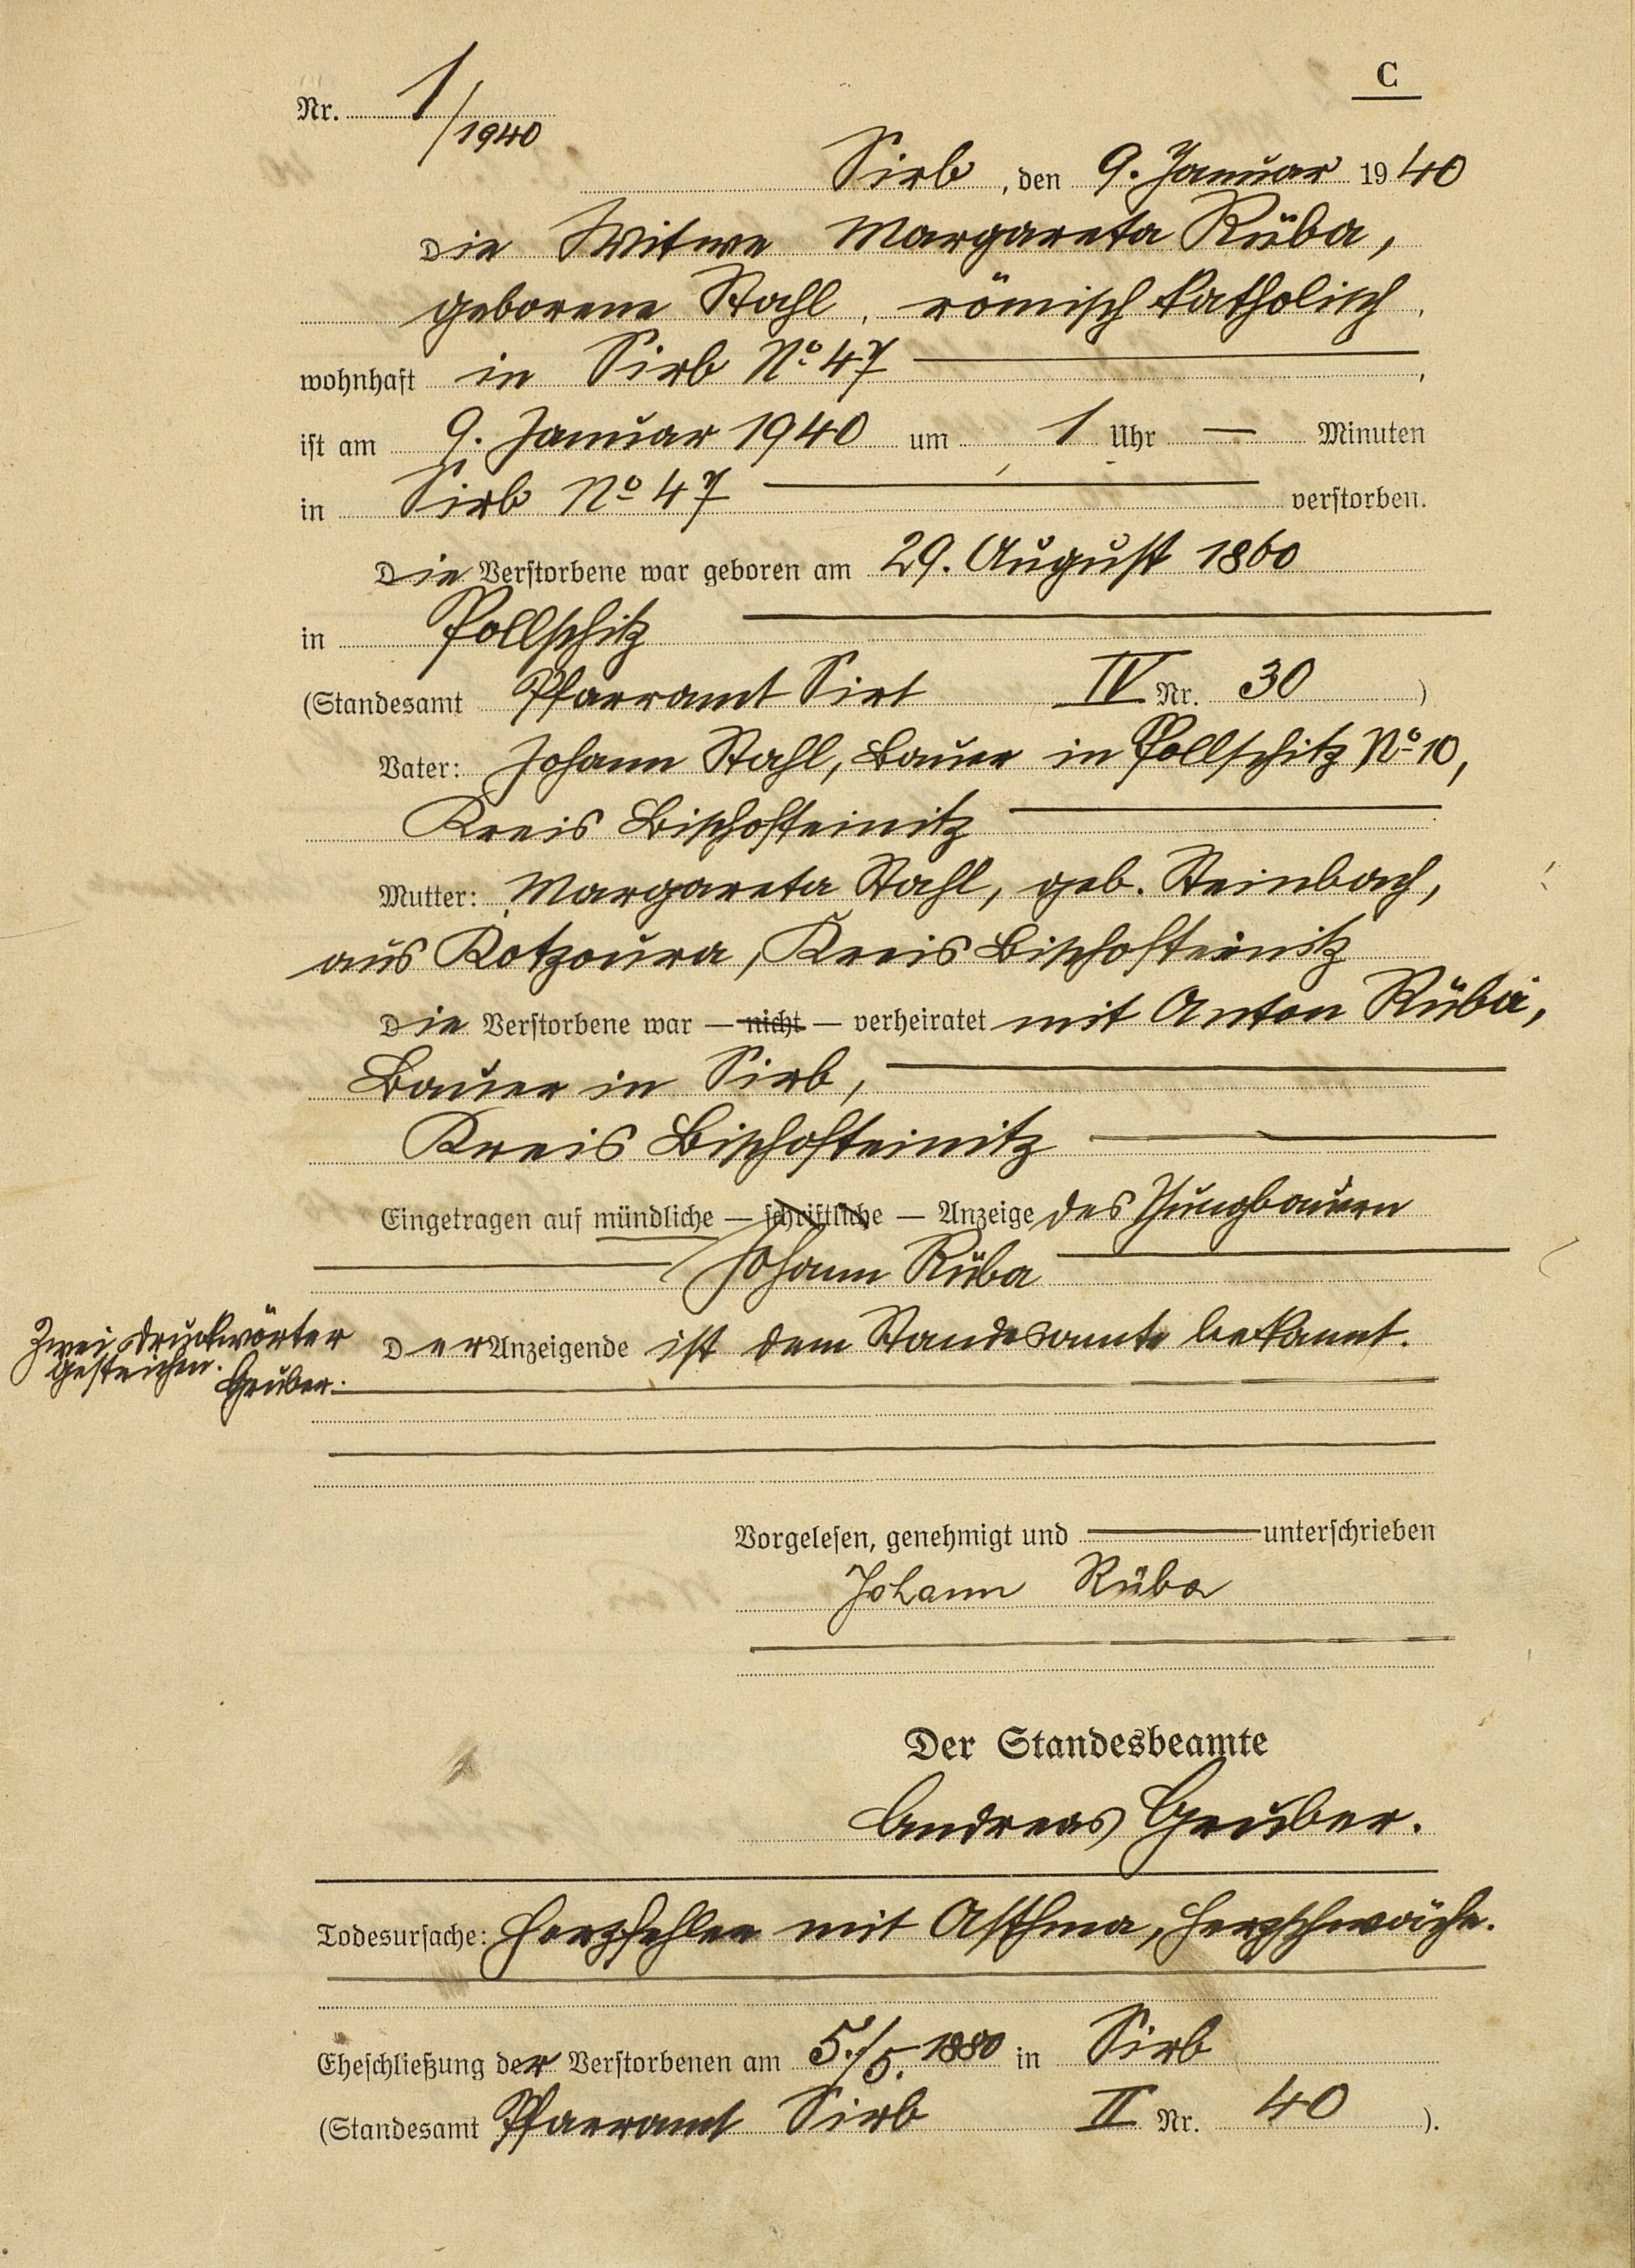 C
Nr. 1/1940
Sirb, den 9. Januar 1940
Die Witwe Margareta Rüba,
geborene Stahl, römisch katholisch,
wohnhaft in Sirb No 47,
ist am 9. Januar 1940 um 1 Uhr — Minuten
in Sirb No 47 verstorben.
Die Verstorbene war geboren am 29. August 1860
in Pollschitz
(Standesamt Pfarramt Sirb IV Nr. 30)
Vater: Johann Stahl, Bauer in Pollschitz No 10,
Kreis Bischofteinitz
Mutter: Margareta Stahl, geb. Steinbach,
aus Kotzoura, Kreis Bischofteinitz
Die Verstorbene war — nicht — verheiratet mit Anton Rüba,
Bauer in Sirb,
Kreis Bischofteinitz
Eingetragen auf mündliche — schriftliche — Anzeige des Jungbauern
Johann Rüba
Der Anzeigende ist dem Standesamte bekannt.
Zwei Druckwörter
gestrichen.
Gruber.
Vorgelesen, genehmigt und unterschrieben
Johann Rüba
Der Standesbeamte
Andreas Gruber.
Todesursache: Herzfehler mit Asthma, Herzschwäche.
Eheschließung der Verstorbenen am 5./5. 1880 in Sirb
(Standesamt Pfarramt Sirb II Nr. 40).